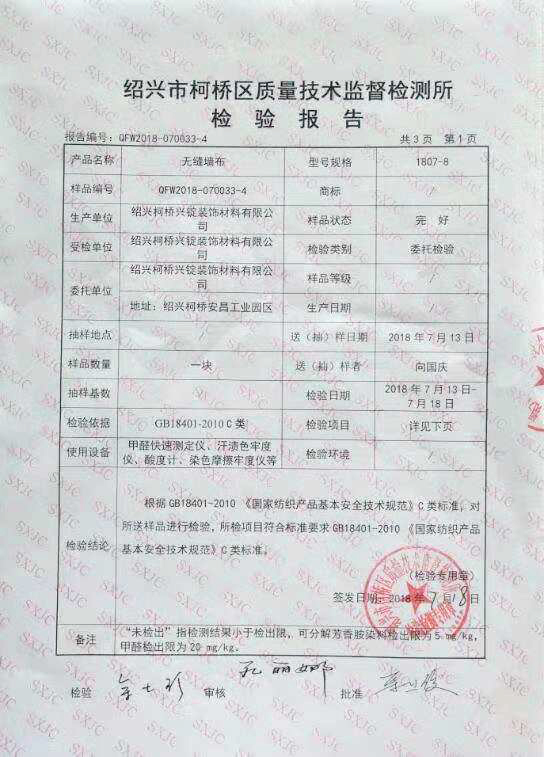 绍兴市柯桥区质量技术监督检测所
检 验 报 告
报告编号：QFW2018-070033-4 共 3 页 第 1 页
产品名称 无缝墙布 型号规格 1807-8
样品编号 QFW2018-070033-4 商标 /
生产单位 绍兴柯桥兴锭装饰材料有限公
司 样品状态 完 好
受检单位 绍兴柯桥兴锭装饰材料有限公
司 检验类别 委托检验
委托单位 绍兴柯桥兴锭装饰材料有限公
司 样品等级 /
地址：绍兴柯桥安昌工业园区 生产日期 /
抽样地点 / 送（抽）样日期 2018 年 7 月 13 日
样品数量 一块 送（抽）样者 向国庆
抽样基数 / 检验日期 2018 年 7 月 13 日-
7 月 18 日
检验依据 GB18401-2010 C 类 检验项目 详见下页
使用设备 甲醛快速测定仪、汗渍色牢度
仪、酸度计、染色摩擦牢度仪等 检验环境 /
检验结论 根据 GB18401-2010 《国家纺织产品基本安全技术规范》C 类标准，对
所送样品进行检验，所检项目符合标准要求 GB18401-2010 《国家纺织产品
基本安全技术规范》C 类标准。
（检验专用章）
签发日期：2018 年 7 月 18 日
备注 “未检出”指检测结果小于检出限，可分解芳香胺染料检出限为 5 mg/kg，
甲醛检出限为 20 mg/kg。
检验 审核 孔丽娜 批准
SXJC